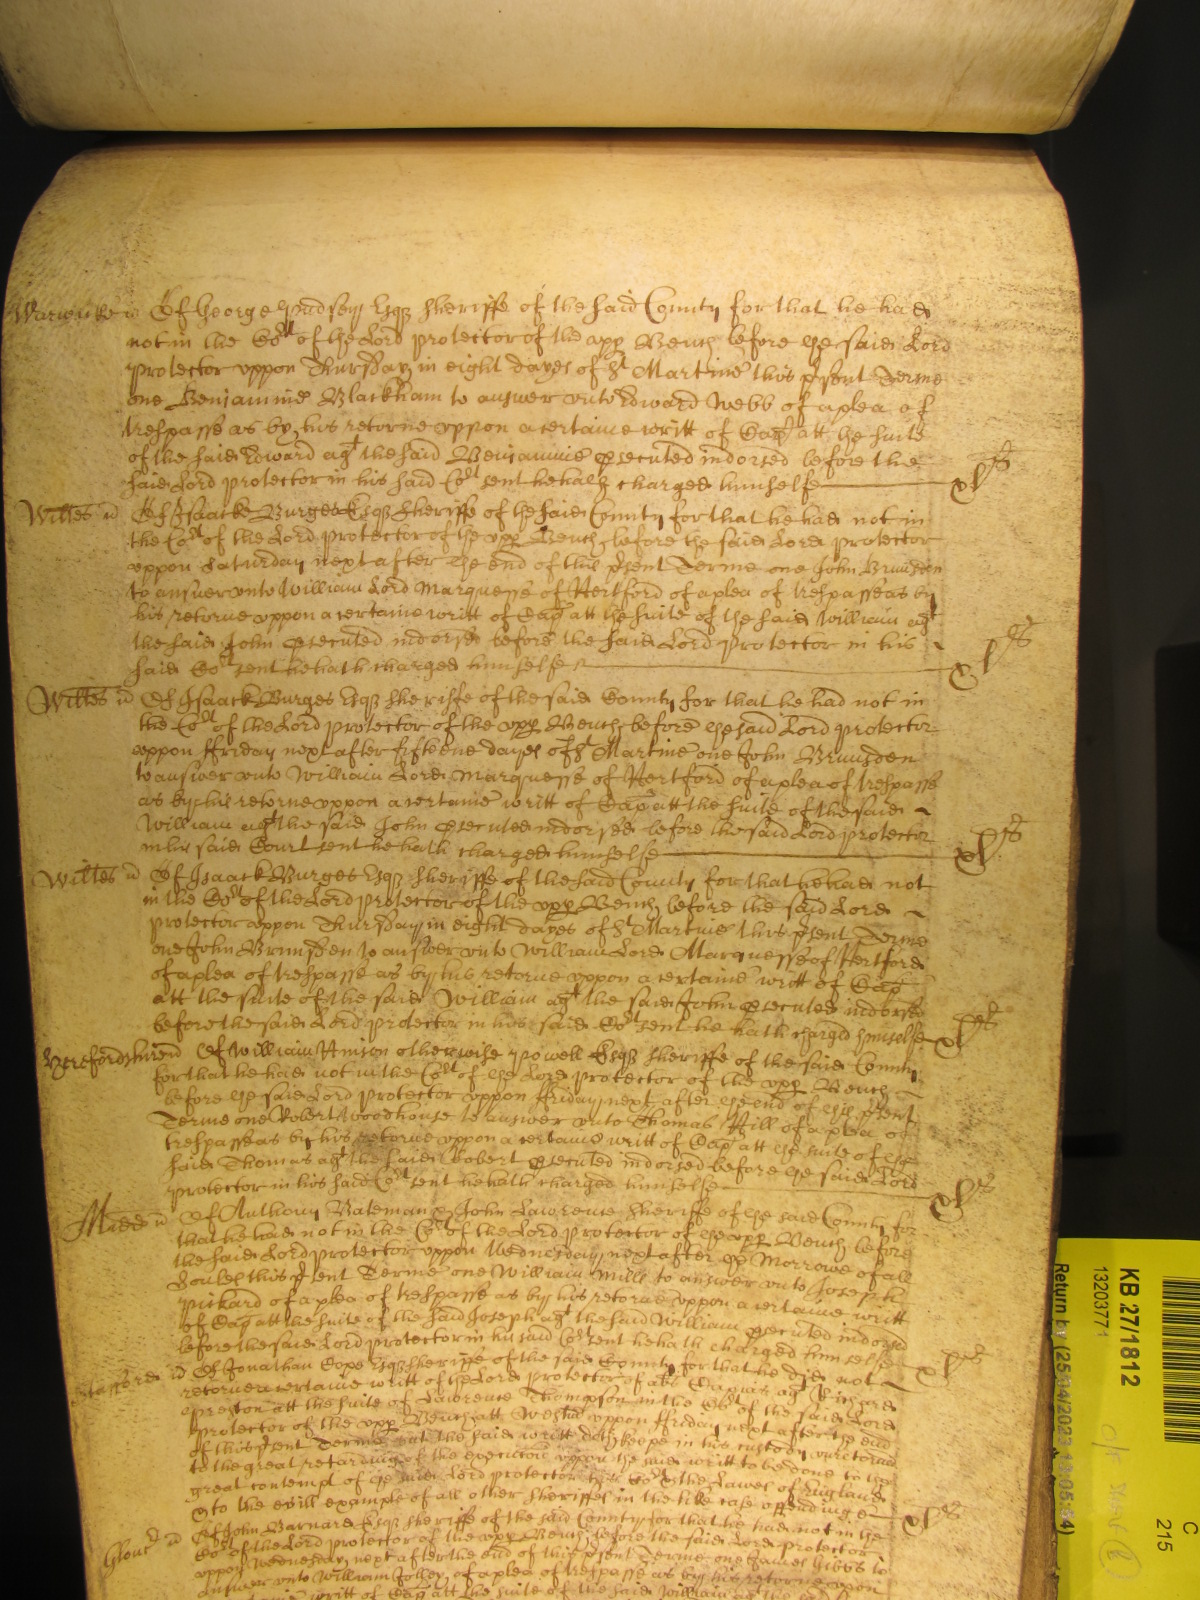 Warwicke ss Of George Esqr Sheriffe of the said County for that he had
not in the Cort of the Lord Protector of the upp Bench before the said Lord
Protector uppon Thursday in eight dayes of St Martine this psent Terme
one Benjamine Blackham to answer unto Edward Webb of a plea of
trespasse as by his retorne uppon a certaine writt of Cap att the suite
of the said Edward agt the said Benjamine executed indorsed before the
said Lord Protector in his said Cort sent he hath charged himselfe xls
Wiltes ss Of Isaacke Burges Esqr Sheriffe of the said County for that he had not in
the Cort of the Lord Protector of the upp Bench before the said Lord Protector
uppon Saturday next after the end of this psent Terme one John Brunsden
to answer unto William Lord Marquesse of Hertford of a plea of trespasse as by
his retorne uppon a certaine writt of Cap att the suite of the said William agt
the said John executed indorsed before the said Lord Protector in his
said Cort sent he hath charged himselfe xls
Wiltes ss Of Isaack Burges Esqr Sheriffe of the said County for that he had not in
the Cort of the Lord Protector of the upp Bench before the said Lord Protector
uppon Friday next after fifteene dayes of St Martine one John Brunsden
to answer unto William Lord Marquesse of Hertford of a plea of trespasse
as by his retorne uppon a certaine writt of Cap att the suite of the said
William agt the said John executed indorsed before the said Lord Protector
in his said Court sent he hath charged himselfe xls
Wiltes ss Of Isaack Burges Esqr Sheriffe of the said County for that he had not
in the Cort of the Lord Protector of the upp Bench before the said Lord
Protector uppon Thursday in eight dayes of St Martine this psent Terme
one John Brunsden to answer unto William Lord Marquesse of Hertford
of a plea of trespasse as by his retorne uppon a certaine writt of Cap
att the suite of the said William agt the said John executed indorsed
before the said Lord Protector in his said Cort sent he hath chargd himselfe xls
Herefordshire ss Of William Hinson otherwise Powell Esqr Sheriffe of the said County
for that he had not in the Cort of the Lord Protector of the upp Bench
before the said Lord Protector uppon Friday next after the end of this psent
Terme one Robert Woodhouse to answer unto Thomas Hill of a plea of
trespasse as by his retorne uppon a certaine writt of Cap att the suite of the
said Thomas agt the said Robert executed indorsed before the said Lord
Protector in his said Cort sent he hath charged himselfe xls
Midds ss Of Anthony Bateman & John Lawrence Sheriffe of the said County for
that he had not in the Cort of the Lord Protector of the upp Bench before
the said Lord Protector uppon Wednesday next after the Morrowe of all
Soules this psent Terme one William Mills to answer unto Joseph
Pickard of a plea of trespasse as by his retorne uppon a certaine writt
of Cap att the suite of the said Joseph agt the said William executed indorsed
before the said Lord Protector in his said Cort sent he hath charged himselfe xls
Stafford ss Of Jonathan Cope Esqr Sheriffe of the said County for that he did not
retorne a certaine writt of the Lord Protector of agt Richard
Preston att the suite of Lawrence Thompson in the Cort of the said Lord
Protector of the upp Bench att Westm uppon Friday next after the end
of this psent Terme but the said writt doth keepe in his custody unretornd
to the great retarding of the execution uppon the said writt to be done to the
great contempt of the said Lord Protector his Cort & the Lawes of England
& to the evill example of all other Sheriffes in the like case offending &c xls
Glouc ss Of John Barnard Esqr Sheriffe of the said County for that he had not in the
Cort of the Lord Protector of the upp Bench before the said Lord Protector
uppon Wednesday next after the end of this psent Terme one James Gibbs to
answer unto William Jolley of a plea of trespasse as by his retorne uppon
writt of Cap att the suite of the said William agt the said
KB 27/1812
13203771
Return by (25/04/2023 13:05:54)
C
215